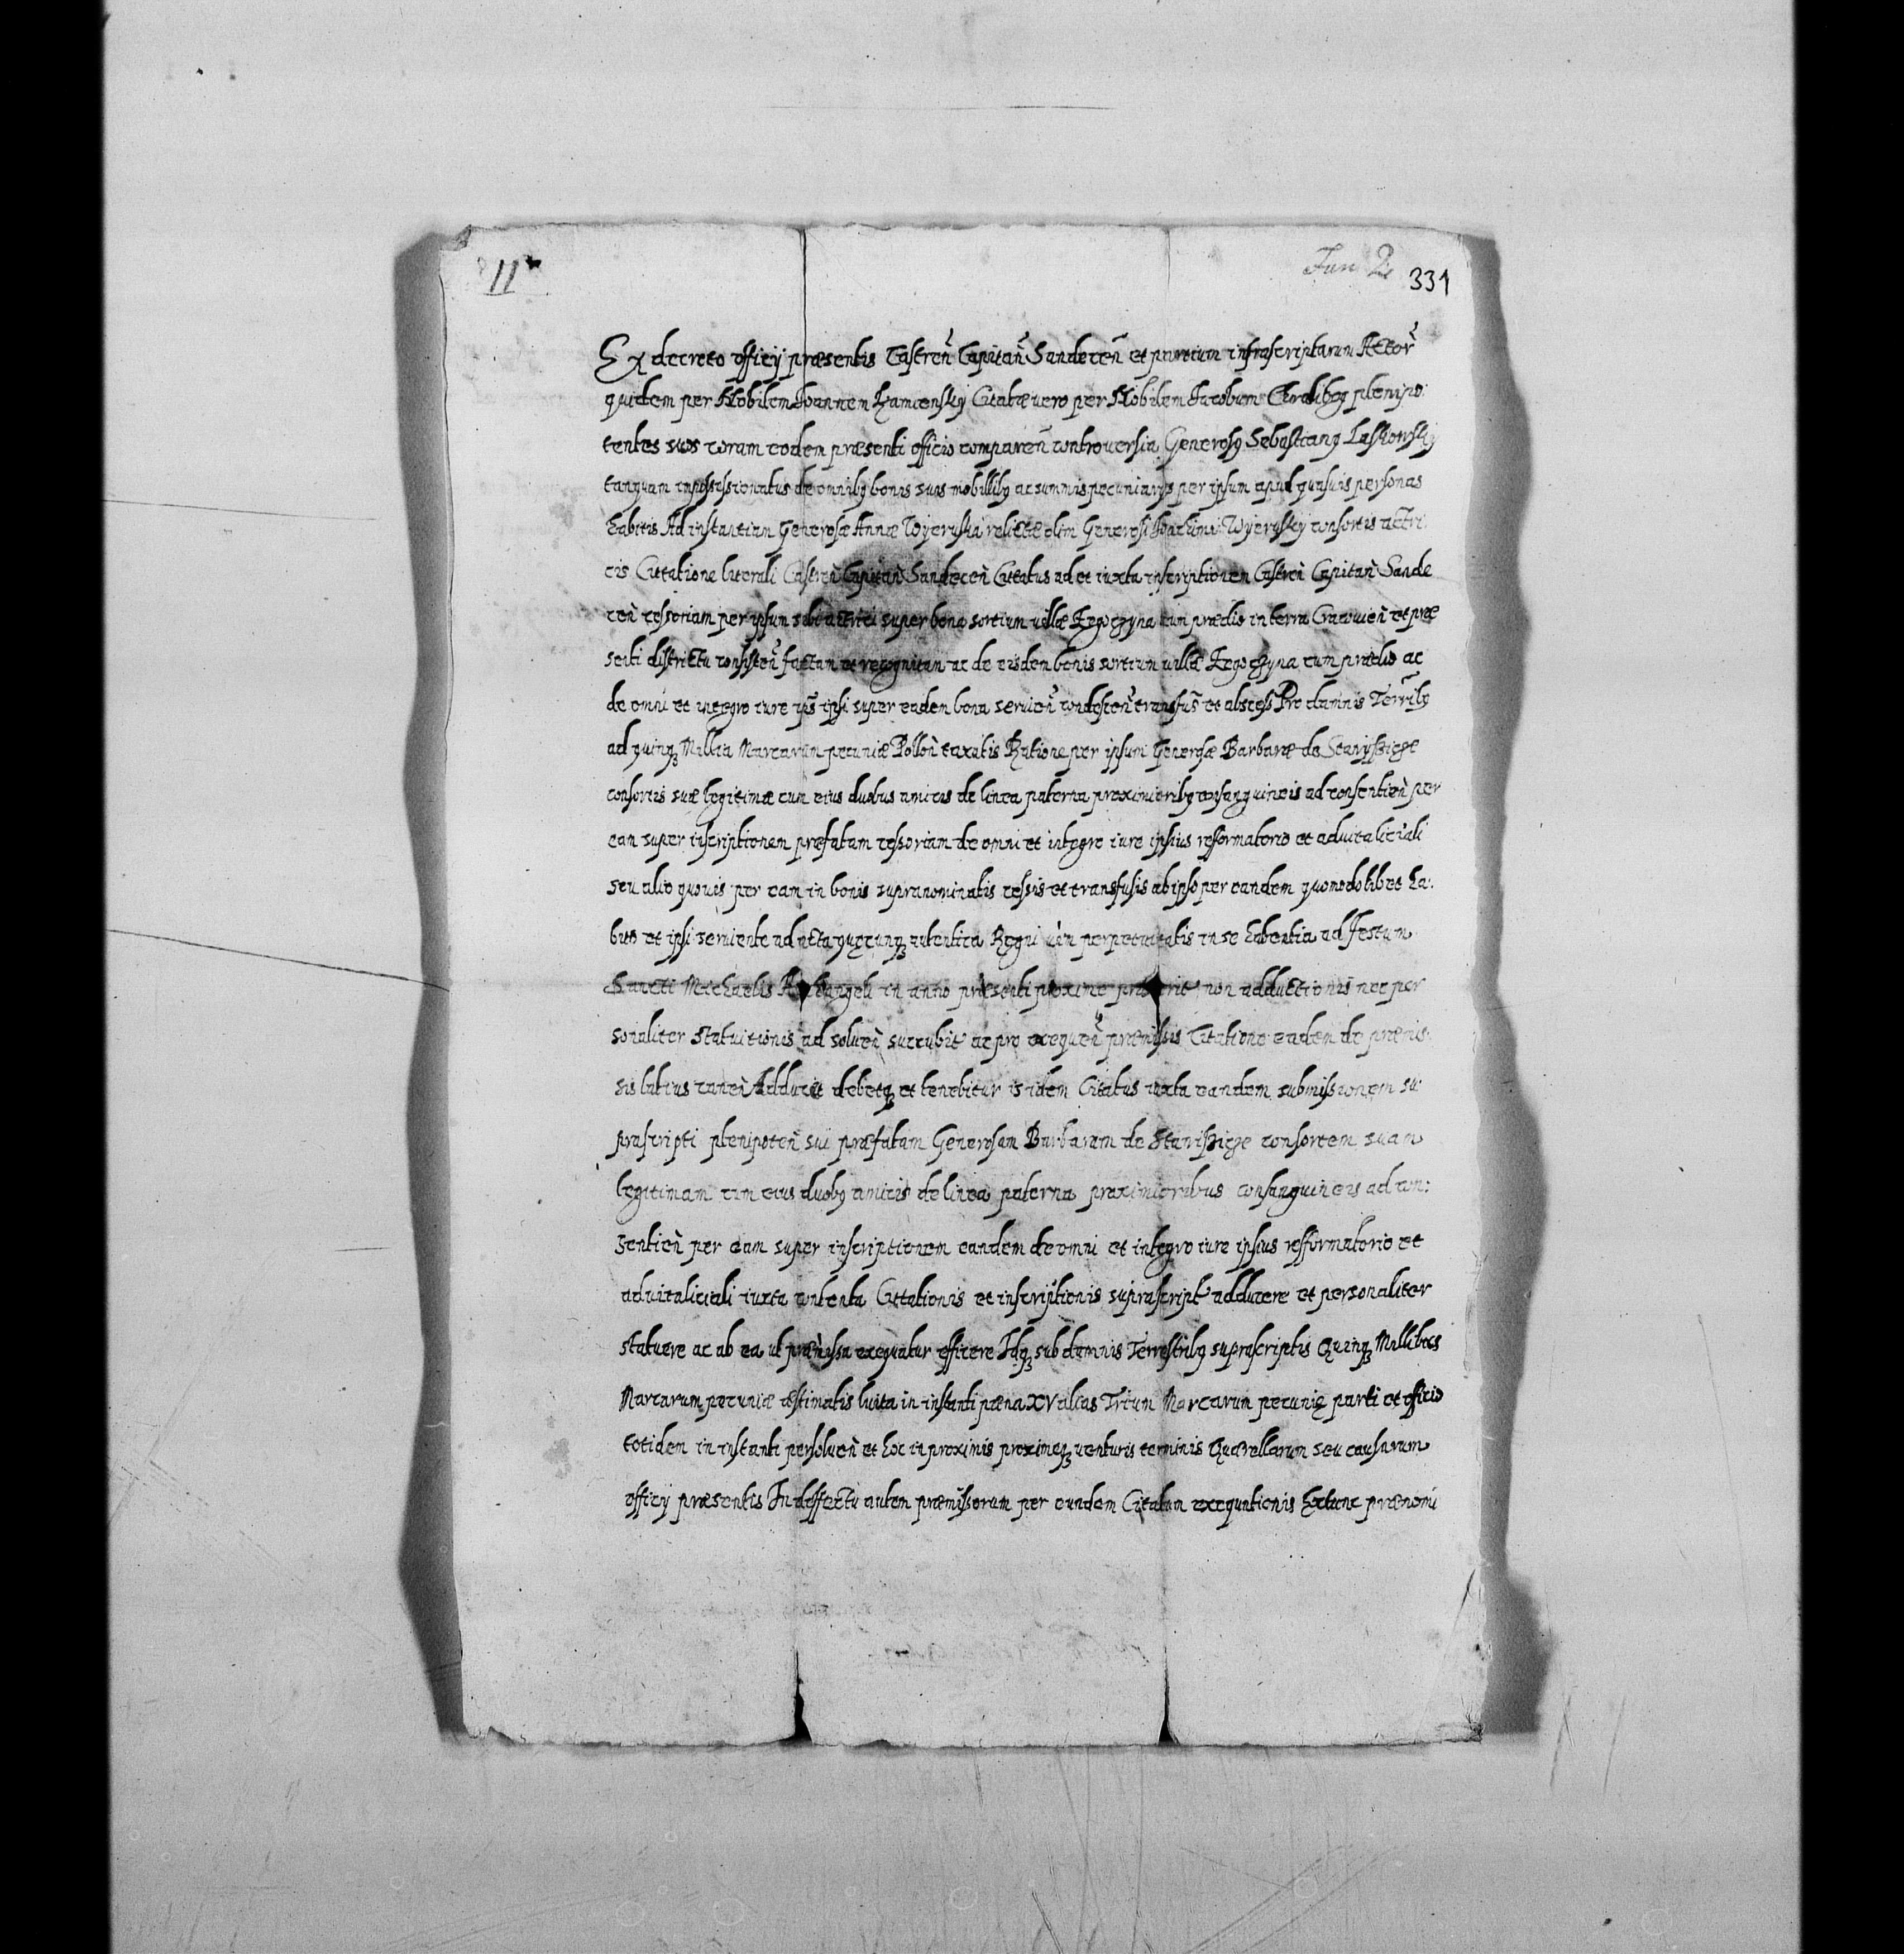 11
Fun 2
331
Ex decreto officij præsentis Castreñ Capitañ Sandeceñ et partium infrascriptarum Actor
quidem per Nobilem Joannem Kamienskij Citatæ vero per Nobilem Jacobum plenipo
tentes suos coram eodem præsenti officio compareñ controversia Generosq Sebastianq Laskowskij
tanquam inpossessionatus de omnibq bonis suis mobilibq ac summis pecuniarijs per ipsum apud quasvis personas
habitis Ad instantiam Generosæ Annæ Wyerüska relictæ olim Generosi Joachimi Wyeruskÿ consortis actri
cis Cittatione literali Castreñ Capitañ Sandeceñ Citatus ad et iuxta inscriptionem Castreñ Capitañ Sande
ceñ cessoriam per ipsum sibi actrici super bona sortium villæ cum prædio in terra Cracovieñ et præ
senti districtu consisteñ factam et recognitam ac de eisdem bonis sortium villæ cum prædio ac
de omni et integro iure ipsi super eadem bona servieñ condesceñ transfus et abscess Pro damnis Terrībq
ad quinq Millia Marcarum pecuniæ Polloñ taxatis Ratione per ipsum Generosæ Barbaræ de
consortis suæ legitimæ cum eius duobus amicis de linea paterna proximioribq consanguineis ad consentieñ per
eam super inscriptionem præfatam cessoriam de omni et integro iure ipsius refformatorio et advitaliciali
seu alio quovis per eam in bonis supranominatis cessis et transfusis ab ipso per eandem quomodolibet ha:
bito et ipsi serviente ad acta quęcunq autentica Regni vim perpetuitatis in se habentia ad Festum
Sancti Michaelis Archangeli in anno præsenti proxime præterit non adductionis nec per
sonaliter statuitionis ad solveñ succubit ac pro exequeñ præmissis Citatione eadem de præmis:
sis latius caneñ Adducet debetq et tenebitur is idem Citatus iuxta eandem submissionem su
prascripti plenipoteñ sui præfatam Generosam Barbaram de consortem suam
legitimam cum eius duobq amicis de linea paterna proximioribus consanguineis ad con:
sentieñ per eam super inscriptionem eandem de omni et integro iure ipsius refformatorio et
advitaliciali iuxta contenta Cittationis et inscriptionis suprascript adducere et personaliter
statuere ac ab ea ut præmissa exequatur efficere Idq sub damnis Terrestribq suprascriptis Quinq Millibus
Marcarum pecuniæ æstimatis luita in instanti pæna XV alias Trium Marcarum pecunię parti et officio
totidem in instanti persolveñ et hoc in proximis proximeq venturis terminis Quærellarum seu causarum
officij præsentis In deffectu autem præmissorum per eundem Citatum exequutionis Extunc prænomi